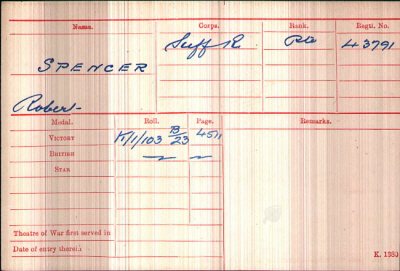 Name. Corps. Rank. Regtl. No.
Suff R Pte 43791
SPENCER
Robert
Medal. Roll. Page. Remarks.
VICTORY K/1/103 B/23 4511
BRITISH
STAR
Theatre of War first served in
Date of entry therein
K. 1380